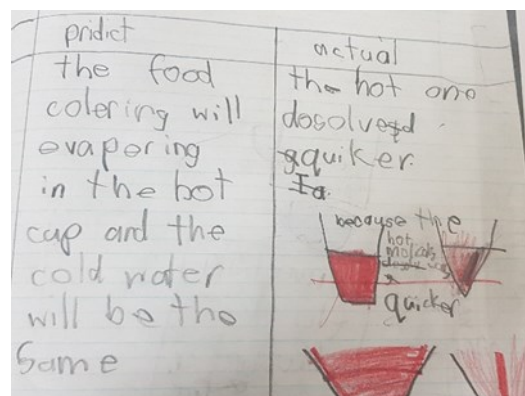 pridict
the food
colering will
evaporing
in the hot
cup and the
cold water
will be the
Same
actual
the hot one
dosolved
quiker.
because the
hot
quicker